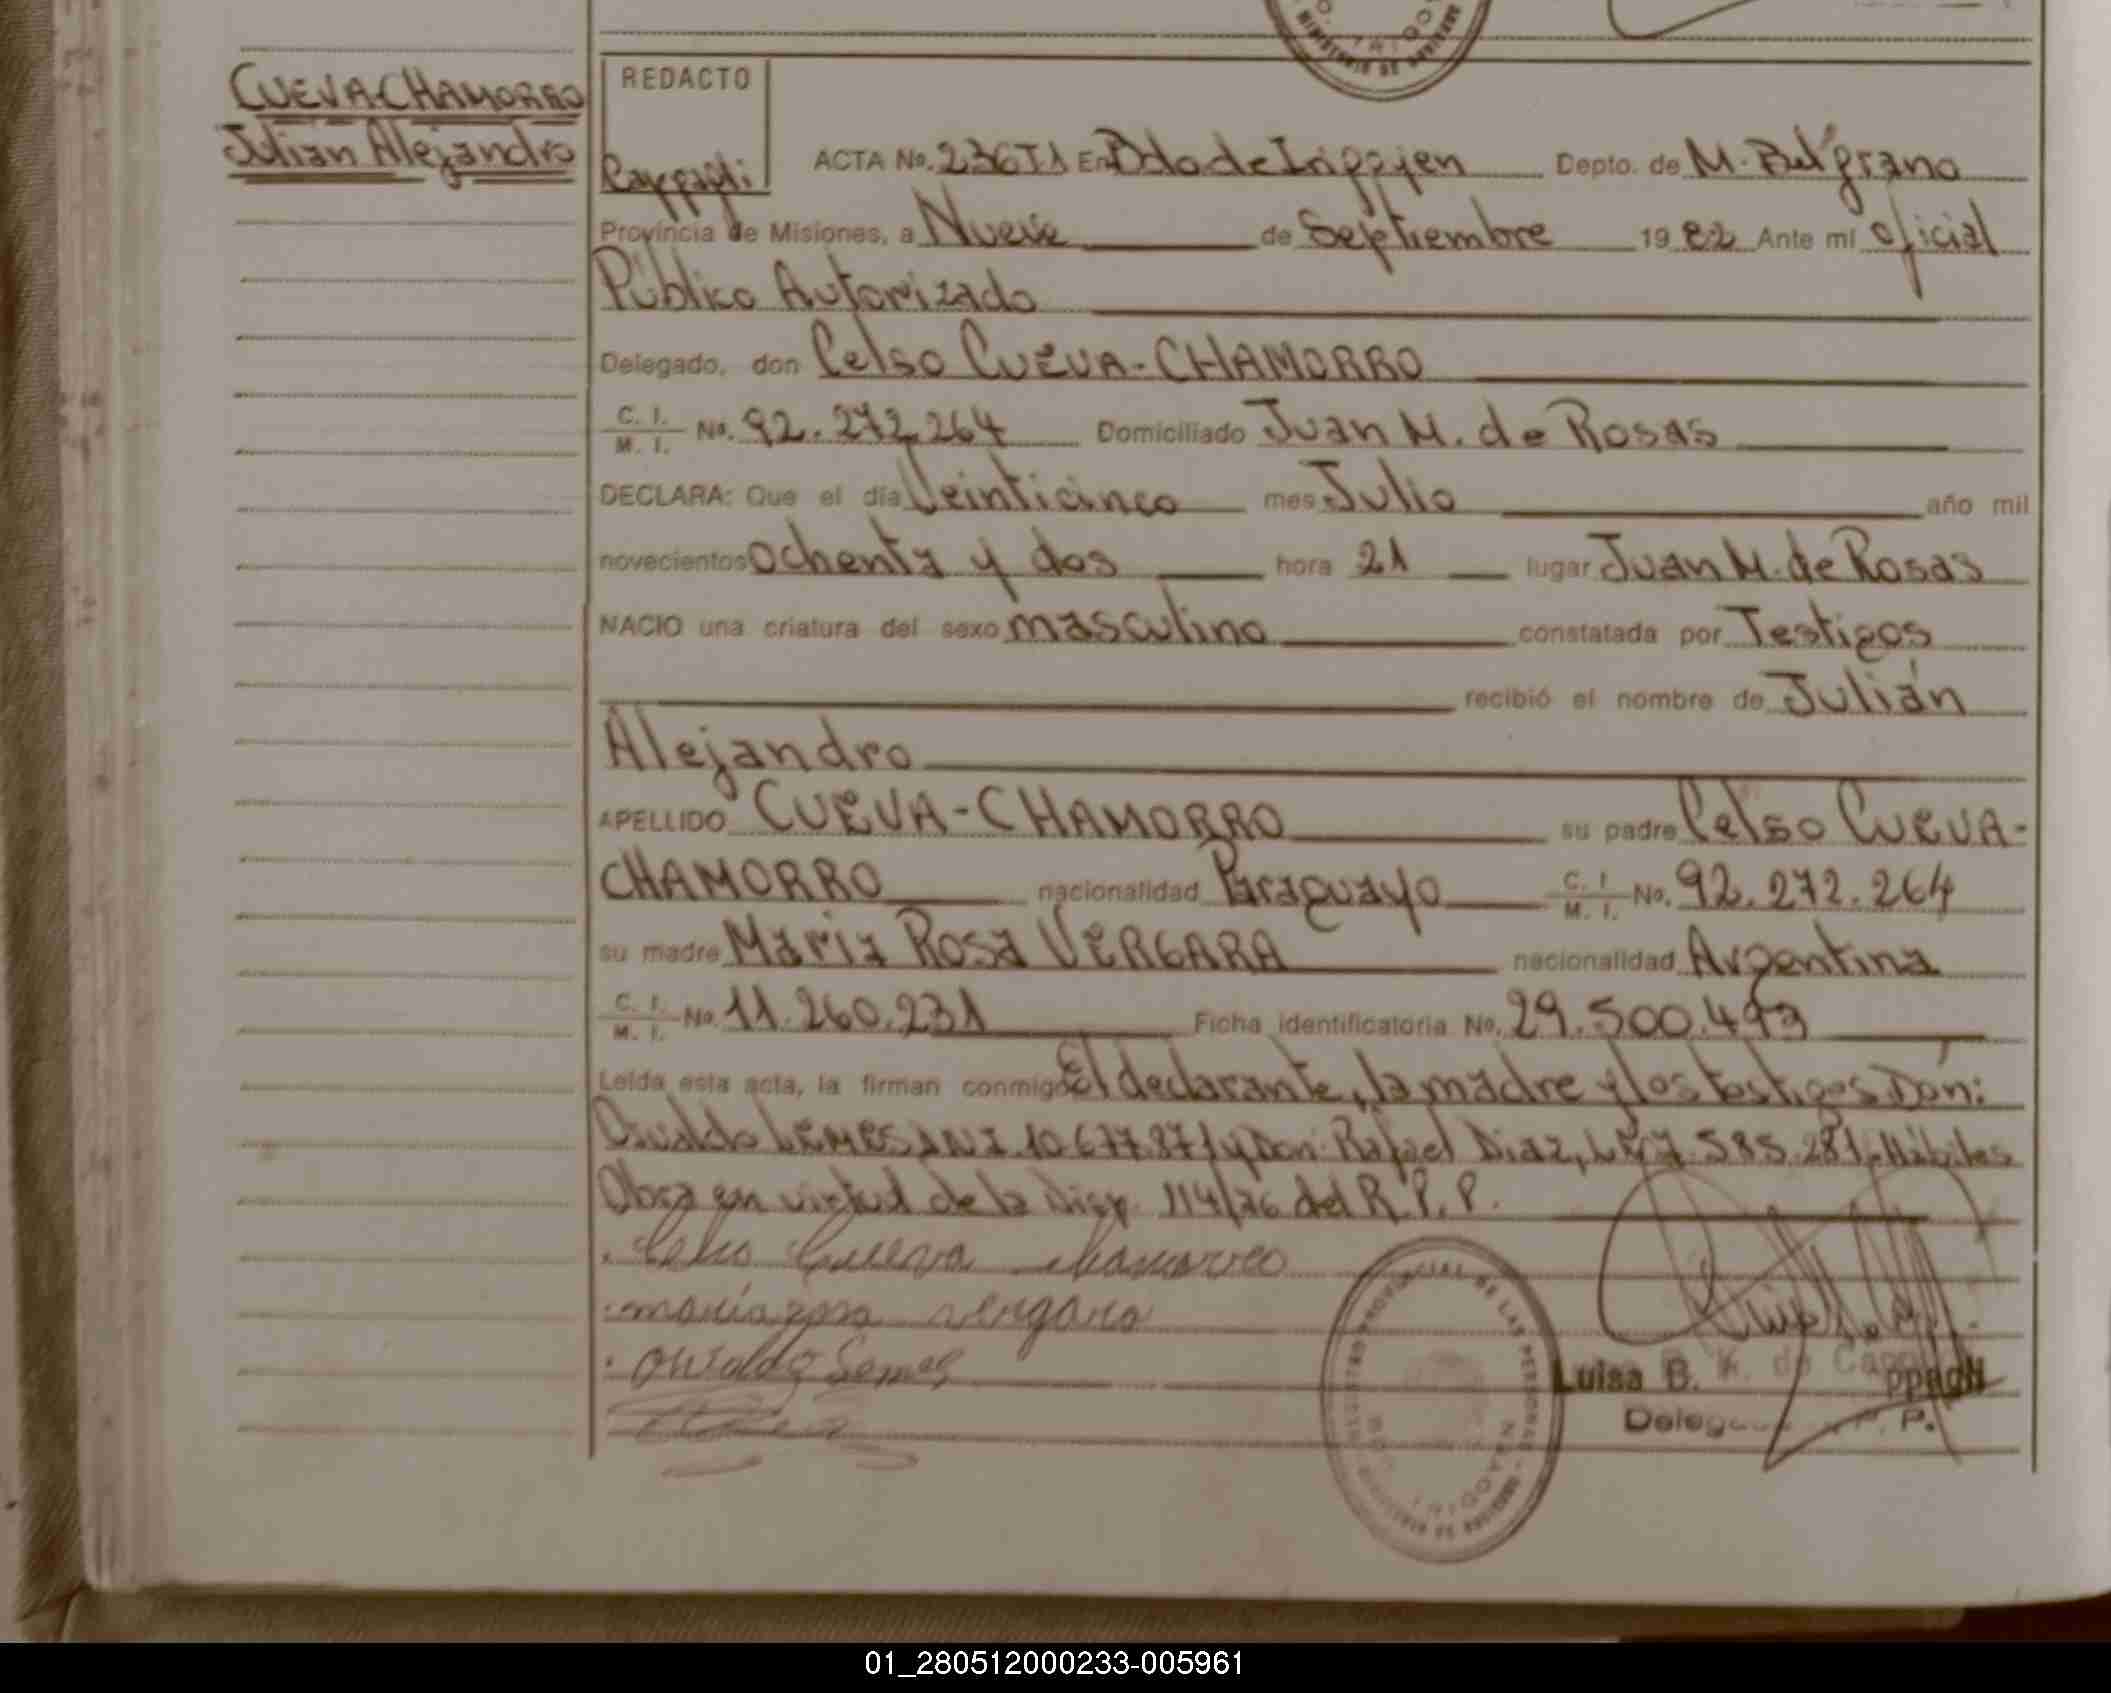 CUEVA-CHAMORRO
Julian Alejandro
REDACTO
Cappagli
ACTA No. 236 T1 En Bdo de Irigoyen Depto. de M. Belgrano
Provincia de Misiones, a Nueve de Septiembre 1982 Ante mi oficial
Público Autorizado
Delegado, don Celso CUEVA-CHAMORRO
C. I. M. I. No. 92.272.264 Domiciliado Juan M. de Rosas
DECLARA: Que el día Veinticinco mes Julio año mil
novecientos ochenta y dos hora 21 lugar Juan M. de Rosas
NACIO una criatura del sexo masculino constatada por Testigos
recibió el nombre de Julián
Alejandro
APELLIDO CUEVA-CHAMORRO su padre Celso CUEVA-
CHAMORRO nacionalidad Paraguayo C. I. M. I. No. 92.272.264
su madre Maria Rosa VERGARA nacionalidad Argentina
C. I. M. I. No. 11.260.231 Ficha identificatoria No. 29.500.493
Leída esta acta, la firman conmigo El declarante, la madre y los testigos Don:
Osvaldo LEMES DNI. 10.677.871 y Don: Rafael Diaz, LE 7.585.281, Hábiles
Obra en virtud de la Disp. 114/76 del R.P.P.
Celso Cueva chamorro
maria rosa vergara
Osvaldo Lemes
Luisa B. K. de Cappagli
P.
01_280512000233-005961